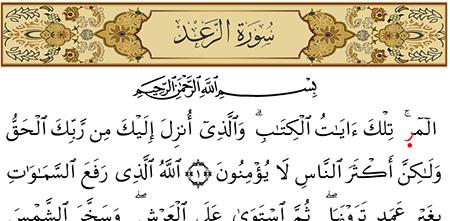 سُورَةُ الرَّعْدِ
بِسْمِ اللَّهِ الرَّحْمَٰنِ الرَّحِيمِ
الٓمٓرۚ تِلْكَ ءَايَٰتُ الْكِتَٰبِۗ وَالَّذِىٓ أُنزِلَ إِلَيْكَ مِن رَّبِّكَ الْحَقُّ
وَلَٰكِنَّ أَكْثَرَ النَّاسِ لَا يُؤْمِنُونَ ﴿١﴾ اللَّهُ الَّذِى رَفَعَ السَّمَٰوَٰتِ
بِغَيْرِ عَمَدٍ تَرَوْنَهَاۖ ثُمَّ اسْتَوَىٰ عَلَى الْعَرْشِۖ وَسَخَّرَ الشَّمْسَ